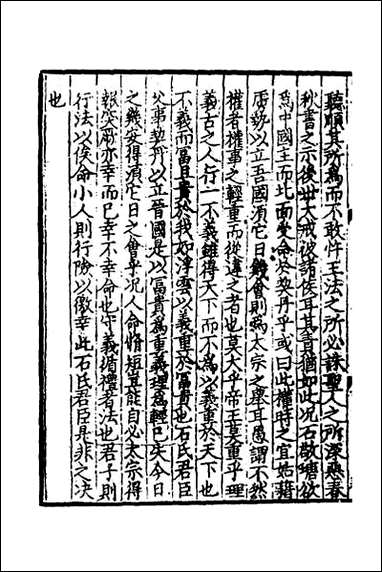 聽順其所爲而不敢忤王法之所必誅聖人之所深惡春
秋書之示後世大戒彼諸侯耳其責猶如此况石敬瑭欲
爲中國王而北面受命於契丹乎或曰此權時之宜姑藉
虜勢以立吾國須它日幾會則爲太宗之舉耳愚謂不然
權者權事之輕重而從違之者也莫大乎帝王莫重乎理
義古之人行一不義雖得天下而不爲以義重於天下也
不義而富且貴於我如浮雲以義重於富貴也石氏君臣
父事契丹以立晉國是以富貴爲重義理爲輕已失今日
之幾安得須它日之會乎况人命脩短豈能自必太宗得
報突厥亦幸而已幸不幸命也守義循禮者法也君子則
行法以俟命小人則行險以徼幸此石氏君臣是非之决
也